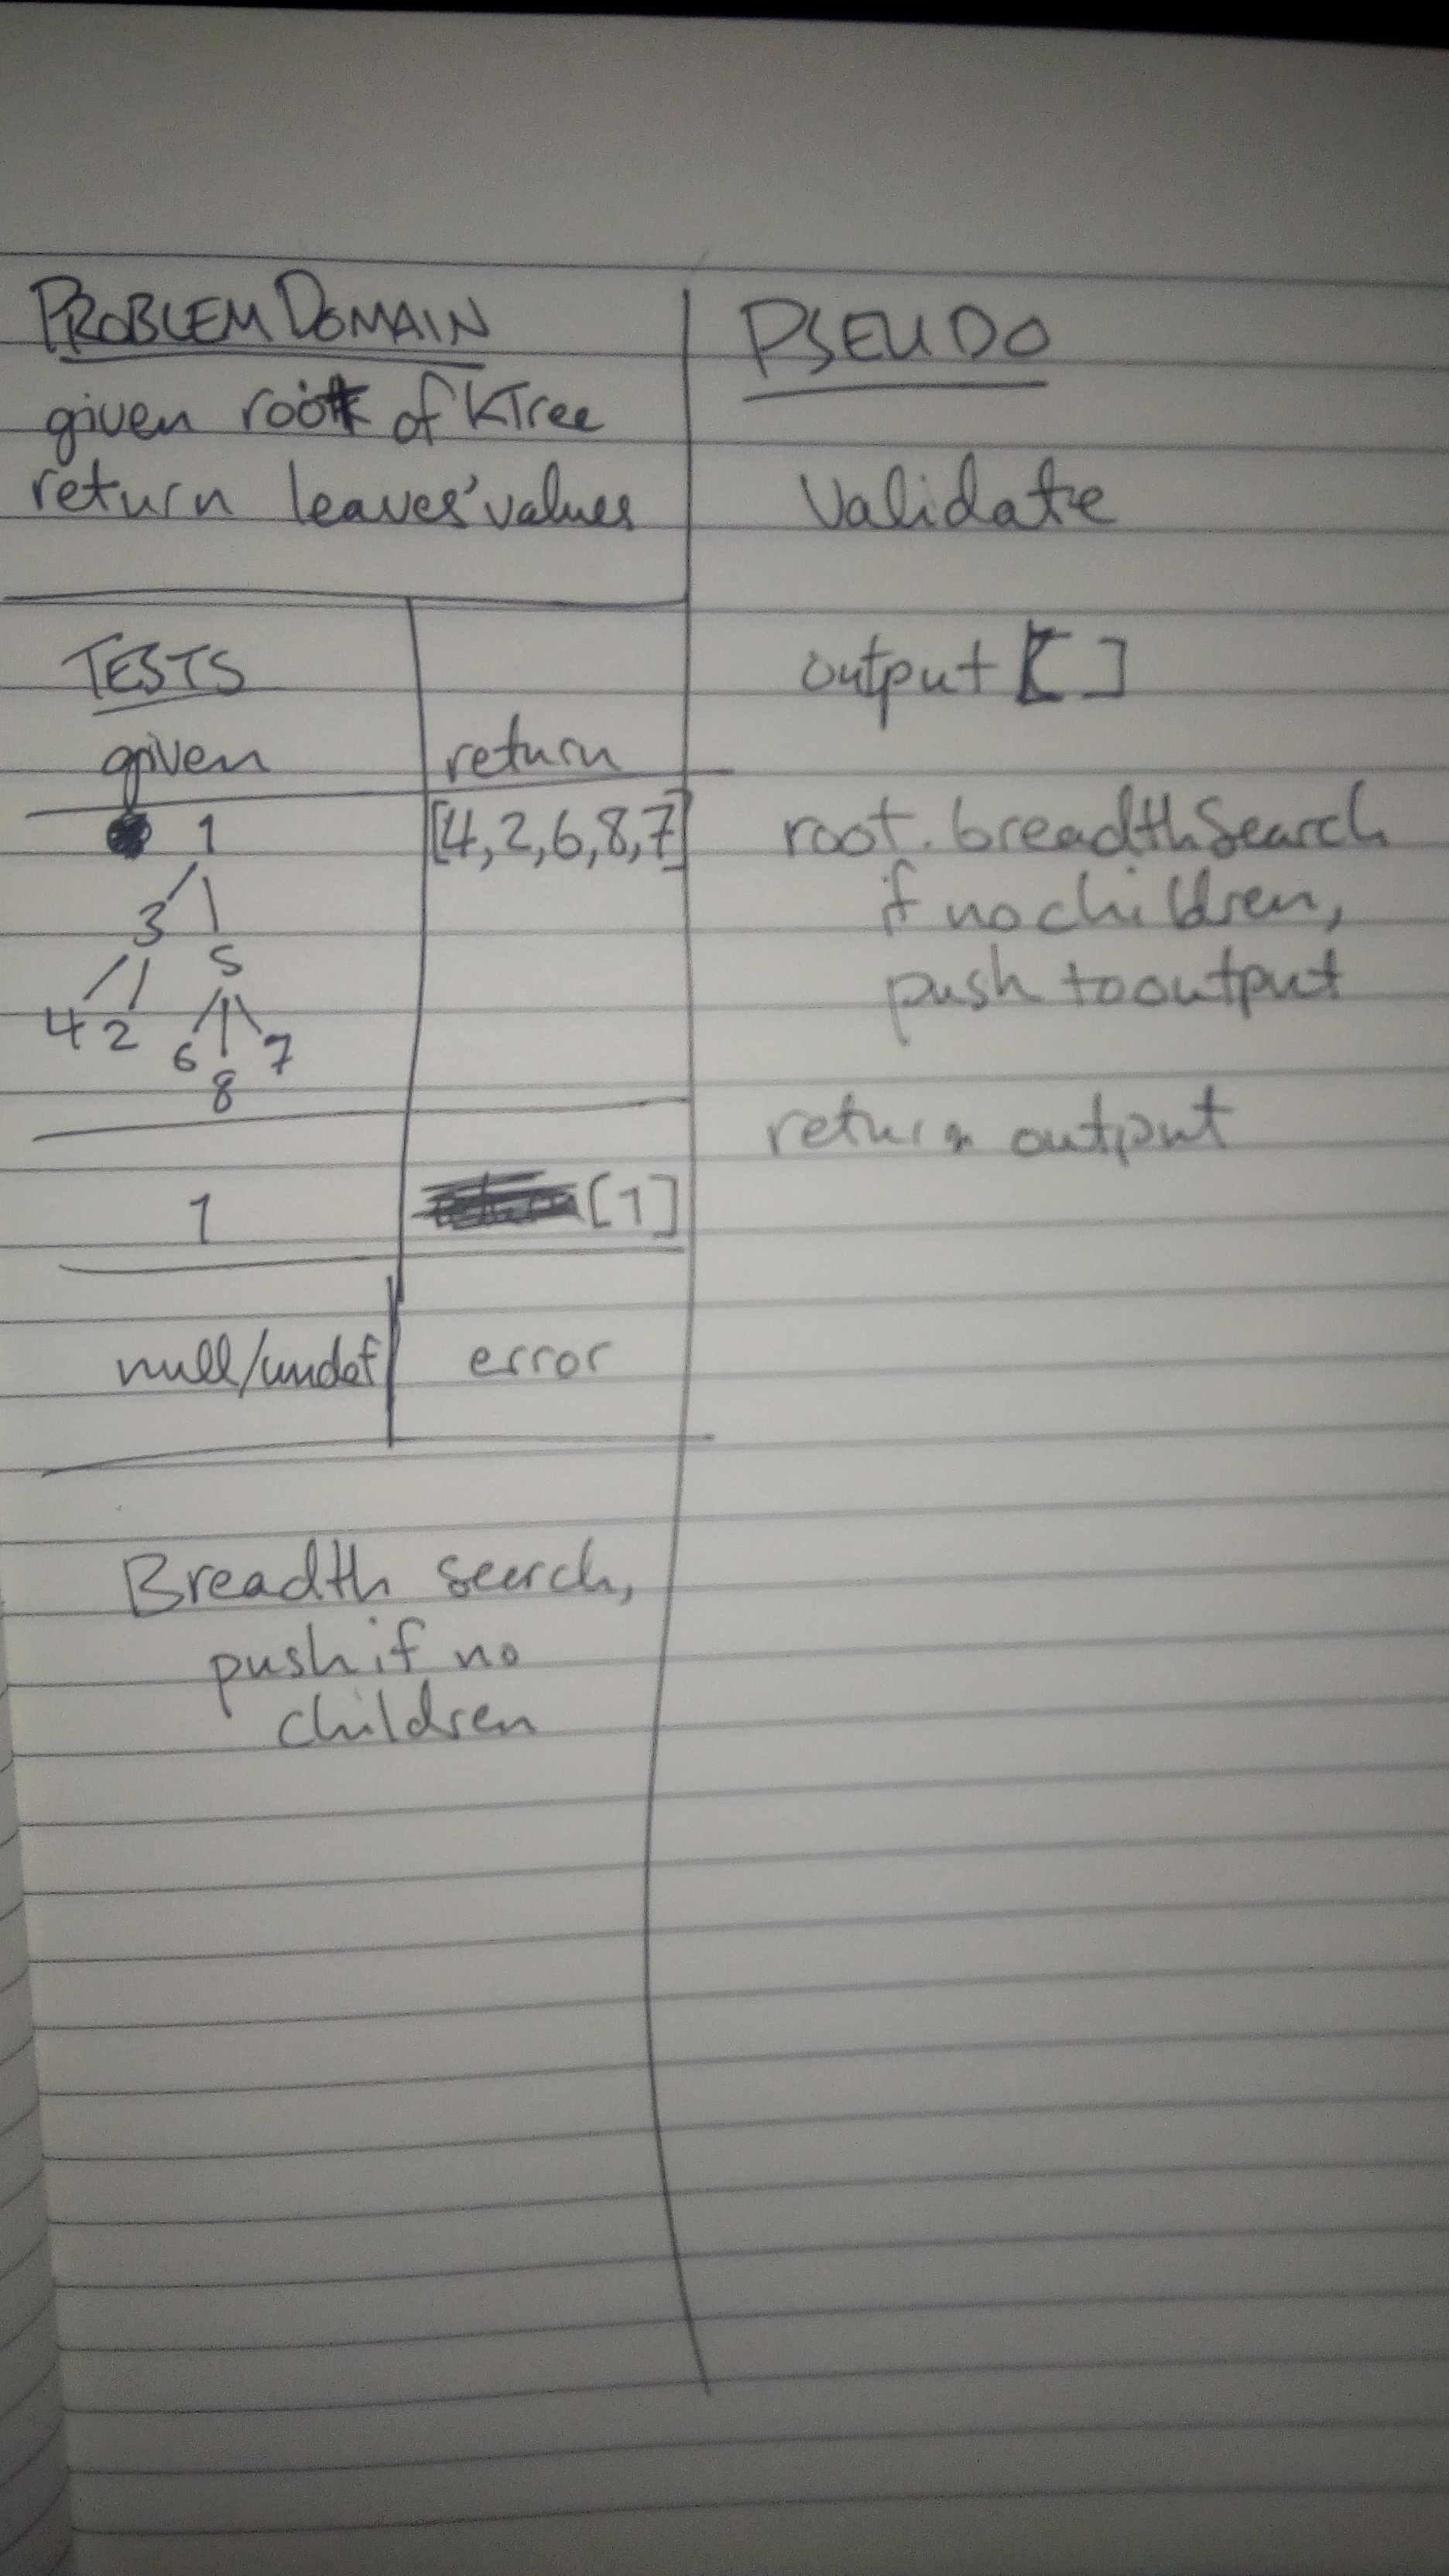 PROBLEM DOMAIN
given root of KTree
return leaves' values
TESTS
given return
1 [4,2,6,8,7]
3
5
4 2
6 7
8
1 [1]
null/undef error
Breadth search,
push if no
children
PSEUDO
Validate
output [ ]
root.breadthSearch
if no children,
push to output
return output